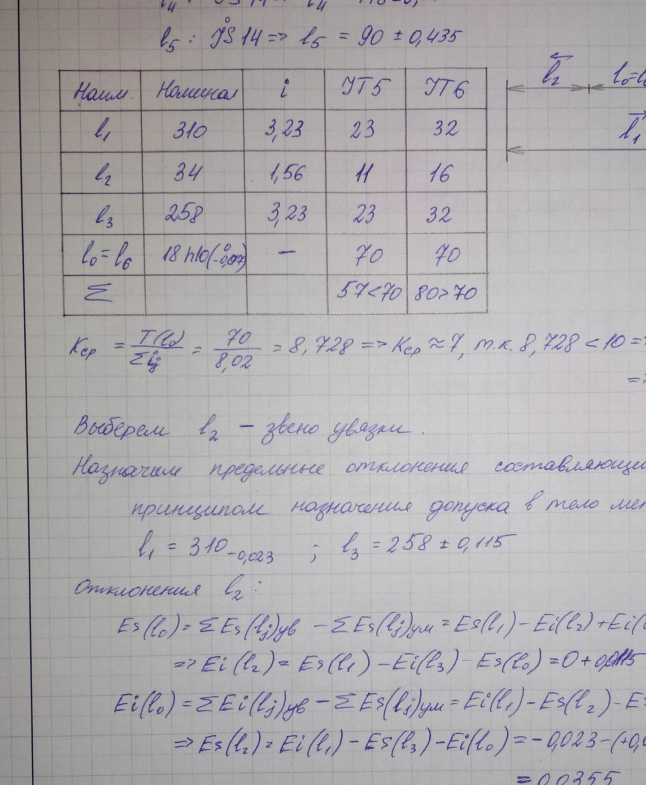 l5 : JS 14 => l5 = 90 ± 0,435
Наим. Номинал i IT5 IT6
l1 310 3,23 23 32
l2 34 1,56 11 16
l3 258 3,23 23 32
l0 = l6 18 h10 (0 -0,07) — 70 70
Σ 57<70 80>70
l2 l0=l
l1
Kср = T(l0)/Σij = 70/8,02 = 8,728 => Kср ≈ 7, т.к. 8,728 < 10 =>
=>
Выберем l2 – звено увязки.
Назначим предельные отклонения составляющи
принципом назначения допуска в тело ме
l1 = 310 -0,023 ; l3 = 258 ± 0,115
Отклонения l2 :
Es(l0) = ΣEs(lj)ув – ΣEi(lj)ум = Es(l1) – Ei(l2) + Ei(l
=> Ei(l2) = Es(l1) – Ei(l3) – Es(l0) = 0 + 0,0115
Ei(l0) = ΣEi(lj)ув – ΣEs(lj)ум = Ei(l1) – Es(l2) – E
=> Es(l2) = Ei(l1) – Es(l3) – Ei(l0) = – 0,023 – (+0,0
= 0,0355